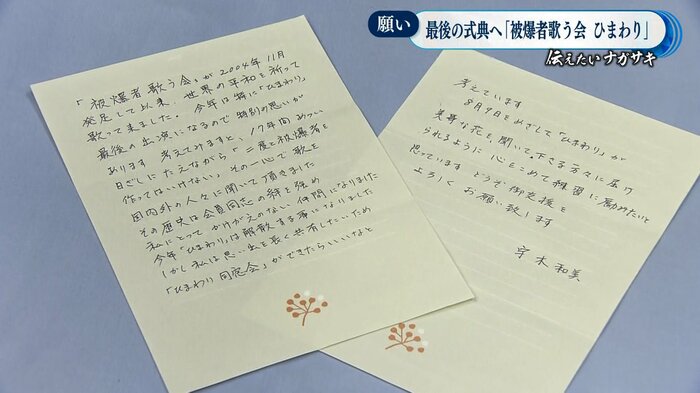 願い
最後の式典へ「被爆者歌う会 ひまわり」
伝えたいナガサキ
「被爆者歌う会」が2004年11月
発足して以来、世界の平和を祈って
歌って来ました。今年は特に「ひまわり」
最後の出演になるので特別の思いが
あります 考えてみますと、17年間あつい
日ざしにたえながら「二度と被爆者を
作ってはいけない」その一心で歌を
国内外の人々に聞いて頂きました
その歴史は会員同志の絆を強め
私にとって かけがえのない仲間になりました
今年「ひまわり」は解散する事になりました
しかし私は思い出を長く共有したいため
「ひまわり同窓会」ができたらいいなと
考えています
8月9日をめざして「ひまわり」が
美哥な花を、聞いて下さる方々に届け
られるように 心をこめて練習に励みたいと
思っています どうぞ御支援を
よろしく お願い致します
守木和美